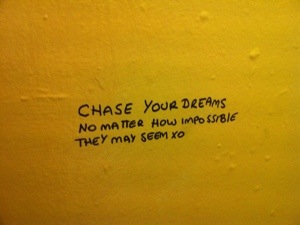 CHASE YOUR DREAMS
NO MATTER HOW IMPOSSIBLE
THEY MAY SEEM XO